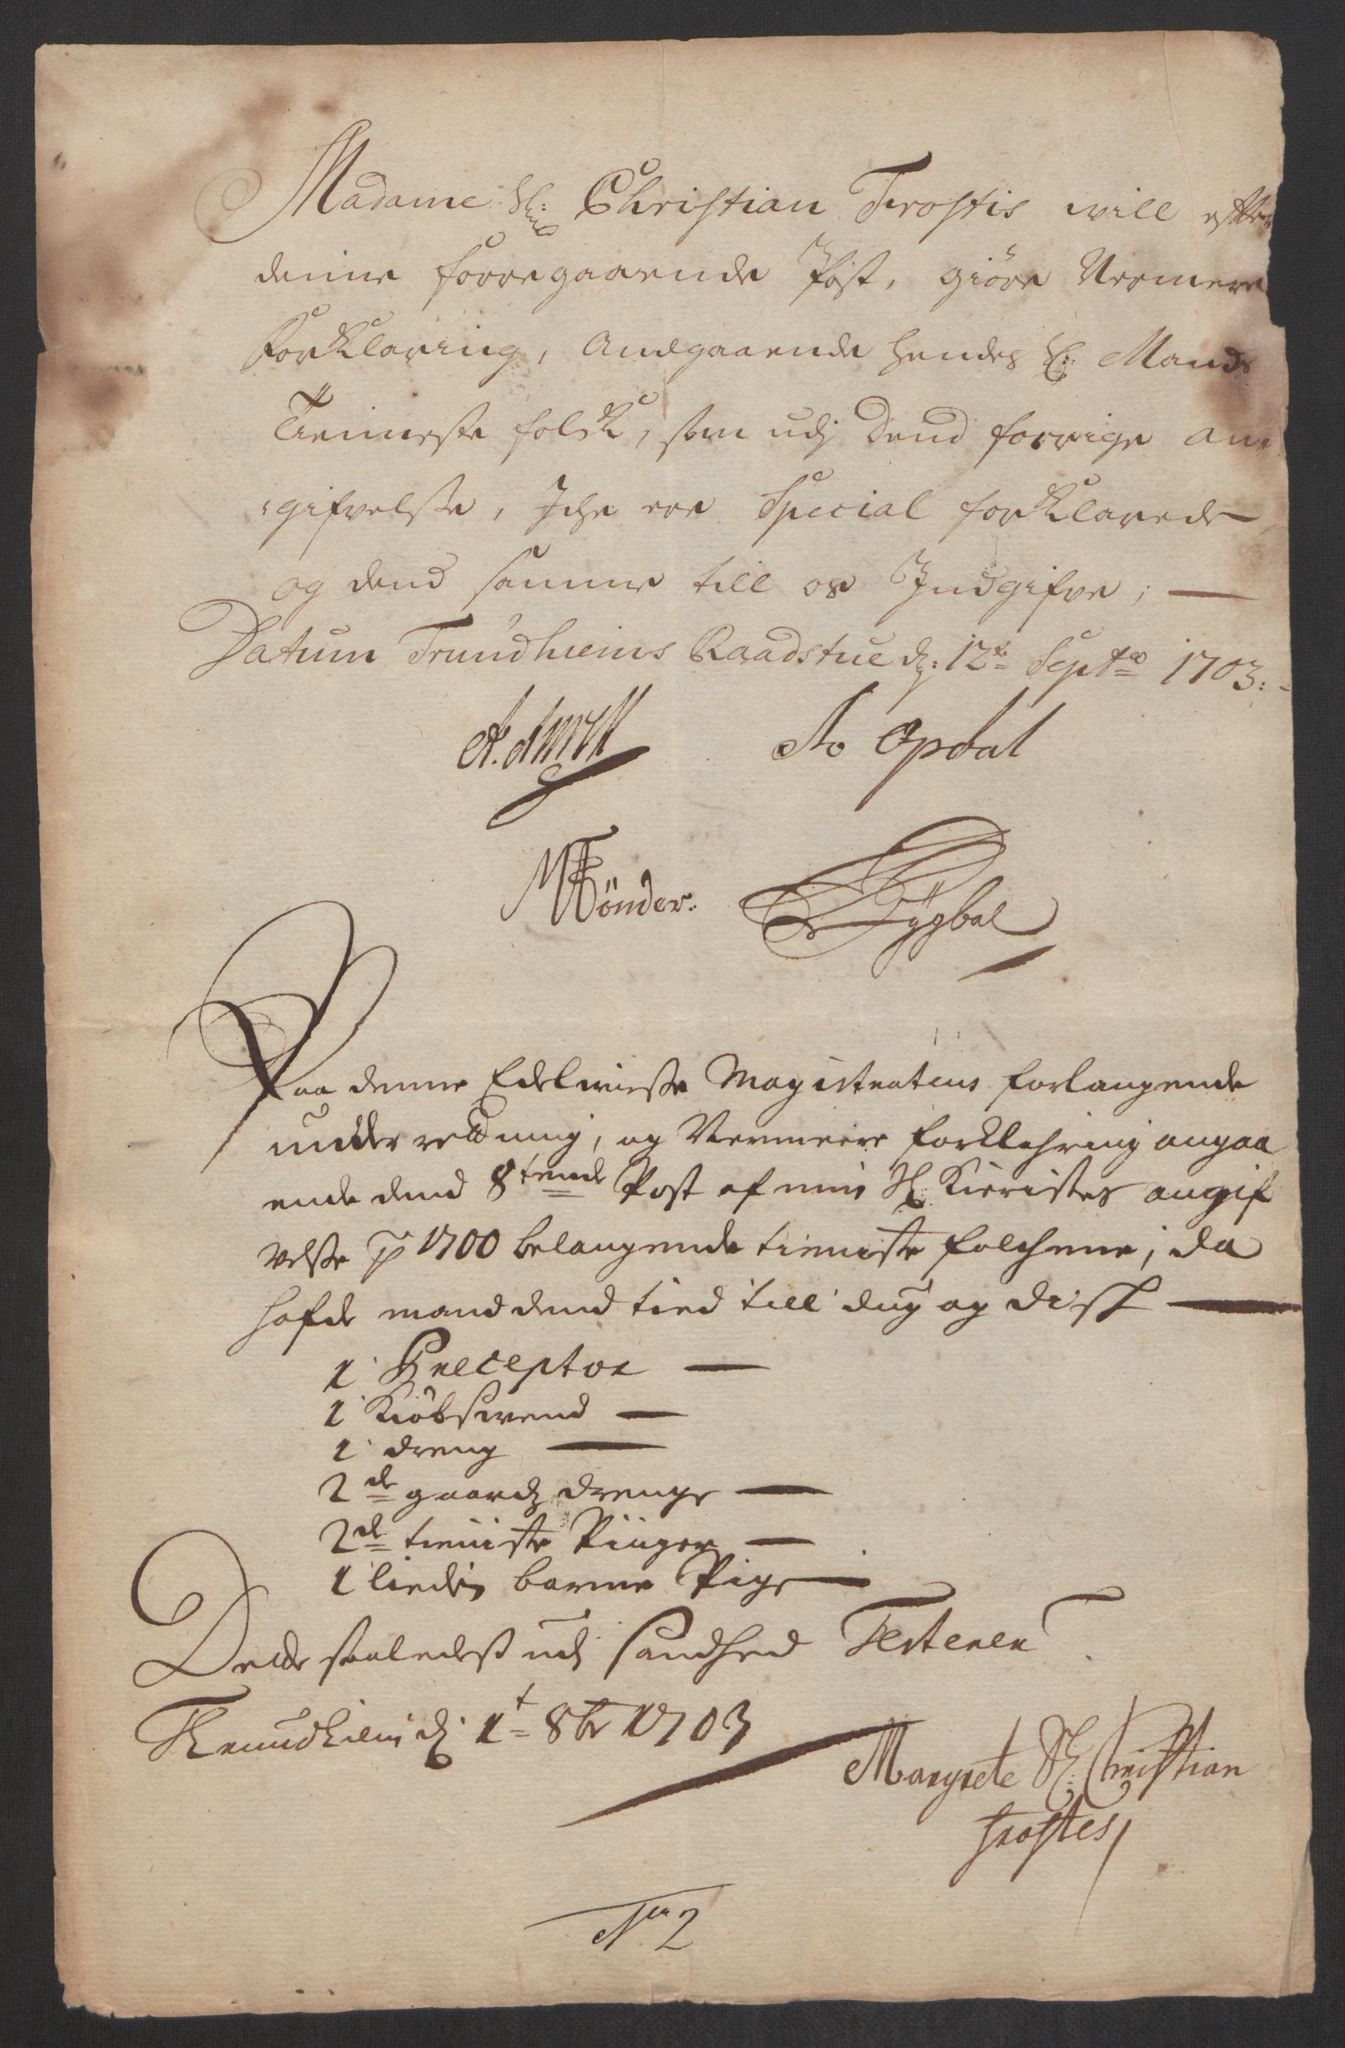 Madame Sl: Christian Frostis will efter
denne forregaaende Post, giöre Nermere
forklaring, Andgaaende hendes Sl: Mands
Tienneste folck, som udj dend forrige an
gifvelsse, Iche ere Special forklarede
og dend samme till os Indgifve;
Datum Trundhiems Raadstue d: 12te Septbr 1703:
So Opdal
MTönder. Lÿgbel
Paa denne Edelwiesse Magistratens forlangende
underretning, og Nermeere forklehring angaa
ende dend 8tende Post af min Sl: Kieristes angif
velsse p 1700 belangende tieniste folchene, da
hafde mand dend tied till dug og disk
1 Preceptor
1 Kiöbswend
1 dreng
2de gaardz drenge
2de tieniste Piiger
1 lieden barne Pige
Dette saaledest udj sandhed Testerer
Trundhiem d: 1t 8br 1703
Margrete Sl: Christian
frostes
No 2